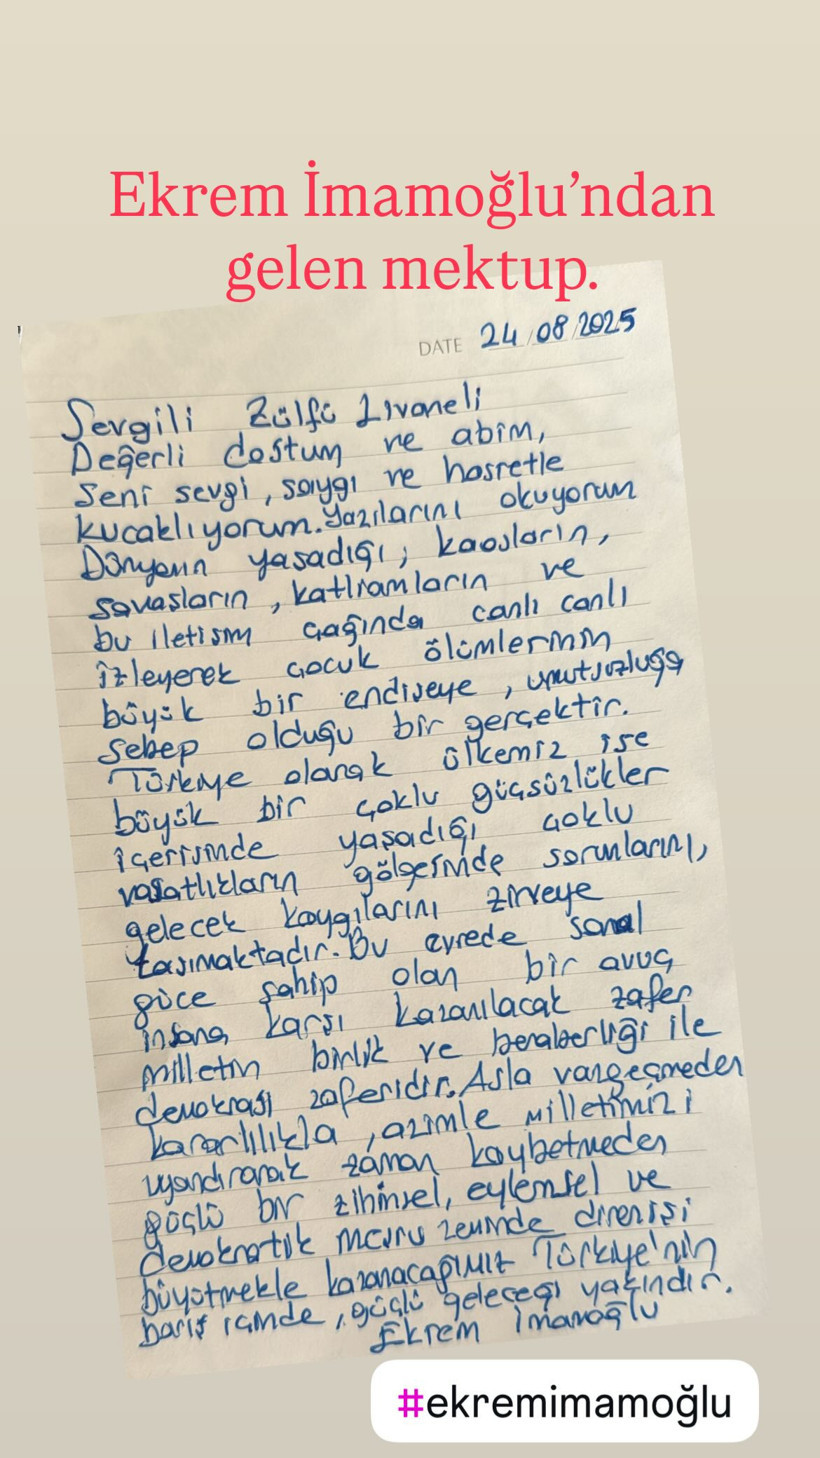 Ekrem İmamoğlu’ndan
gelen mektup.
DATE 24/08/2025
Sevgili Zülfü Livaneli
Değerli dostum ve abim,
Seni sevgi, saygı ve hasretle
kucaklıyorum. Yazılarını okuyorum
Dünyanın yaşadığı, kaosların,
savaşların, katliamların ve
bu iletişim çağında canlı canlı
izleyerek çocuk ölümlerinin
büyük bir endişeye, umutsuzluğa
sebep olduğu bir gerçektir.
Türkiye olarak ülkemiz ise
büyük bir çoklu güçsüzlükler
içerisinde yaşadığı çoklu
vasatlıkların gölgesinde sorunlarını,
gelecek kaygılarını zirveye
taşımaktadır. Bu evrede sanal
güce sahip olan bir avuç
insana karşı kazanılacak zafer
milletin birlik ve beraberliği ile
demokrasi zaferidir. Asla vazgeçmeden
kararlılıkla, azimle milletimizi
uyandırarak zaman kaybetmeden
güçlü bir zihinsel, eylemsel ve
demokratik meşru zeminde direnişi
büyütmekle kazanacağımız Türkiye'nin
barış içinde, güçlü geleceği yakındır.
Ekrem İmamoğlu
#ekremimamoğlu